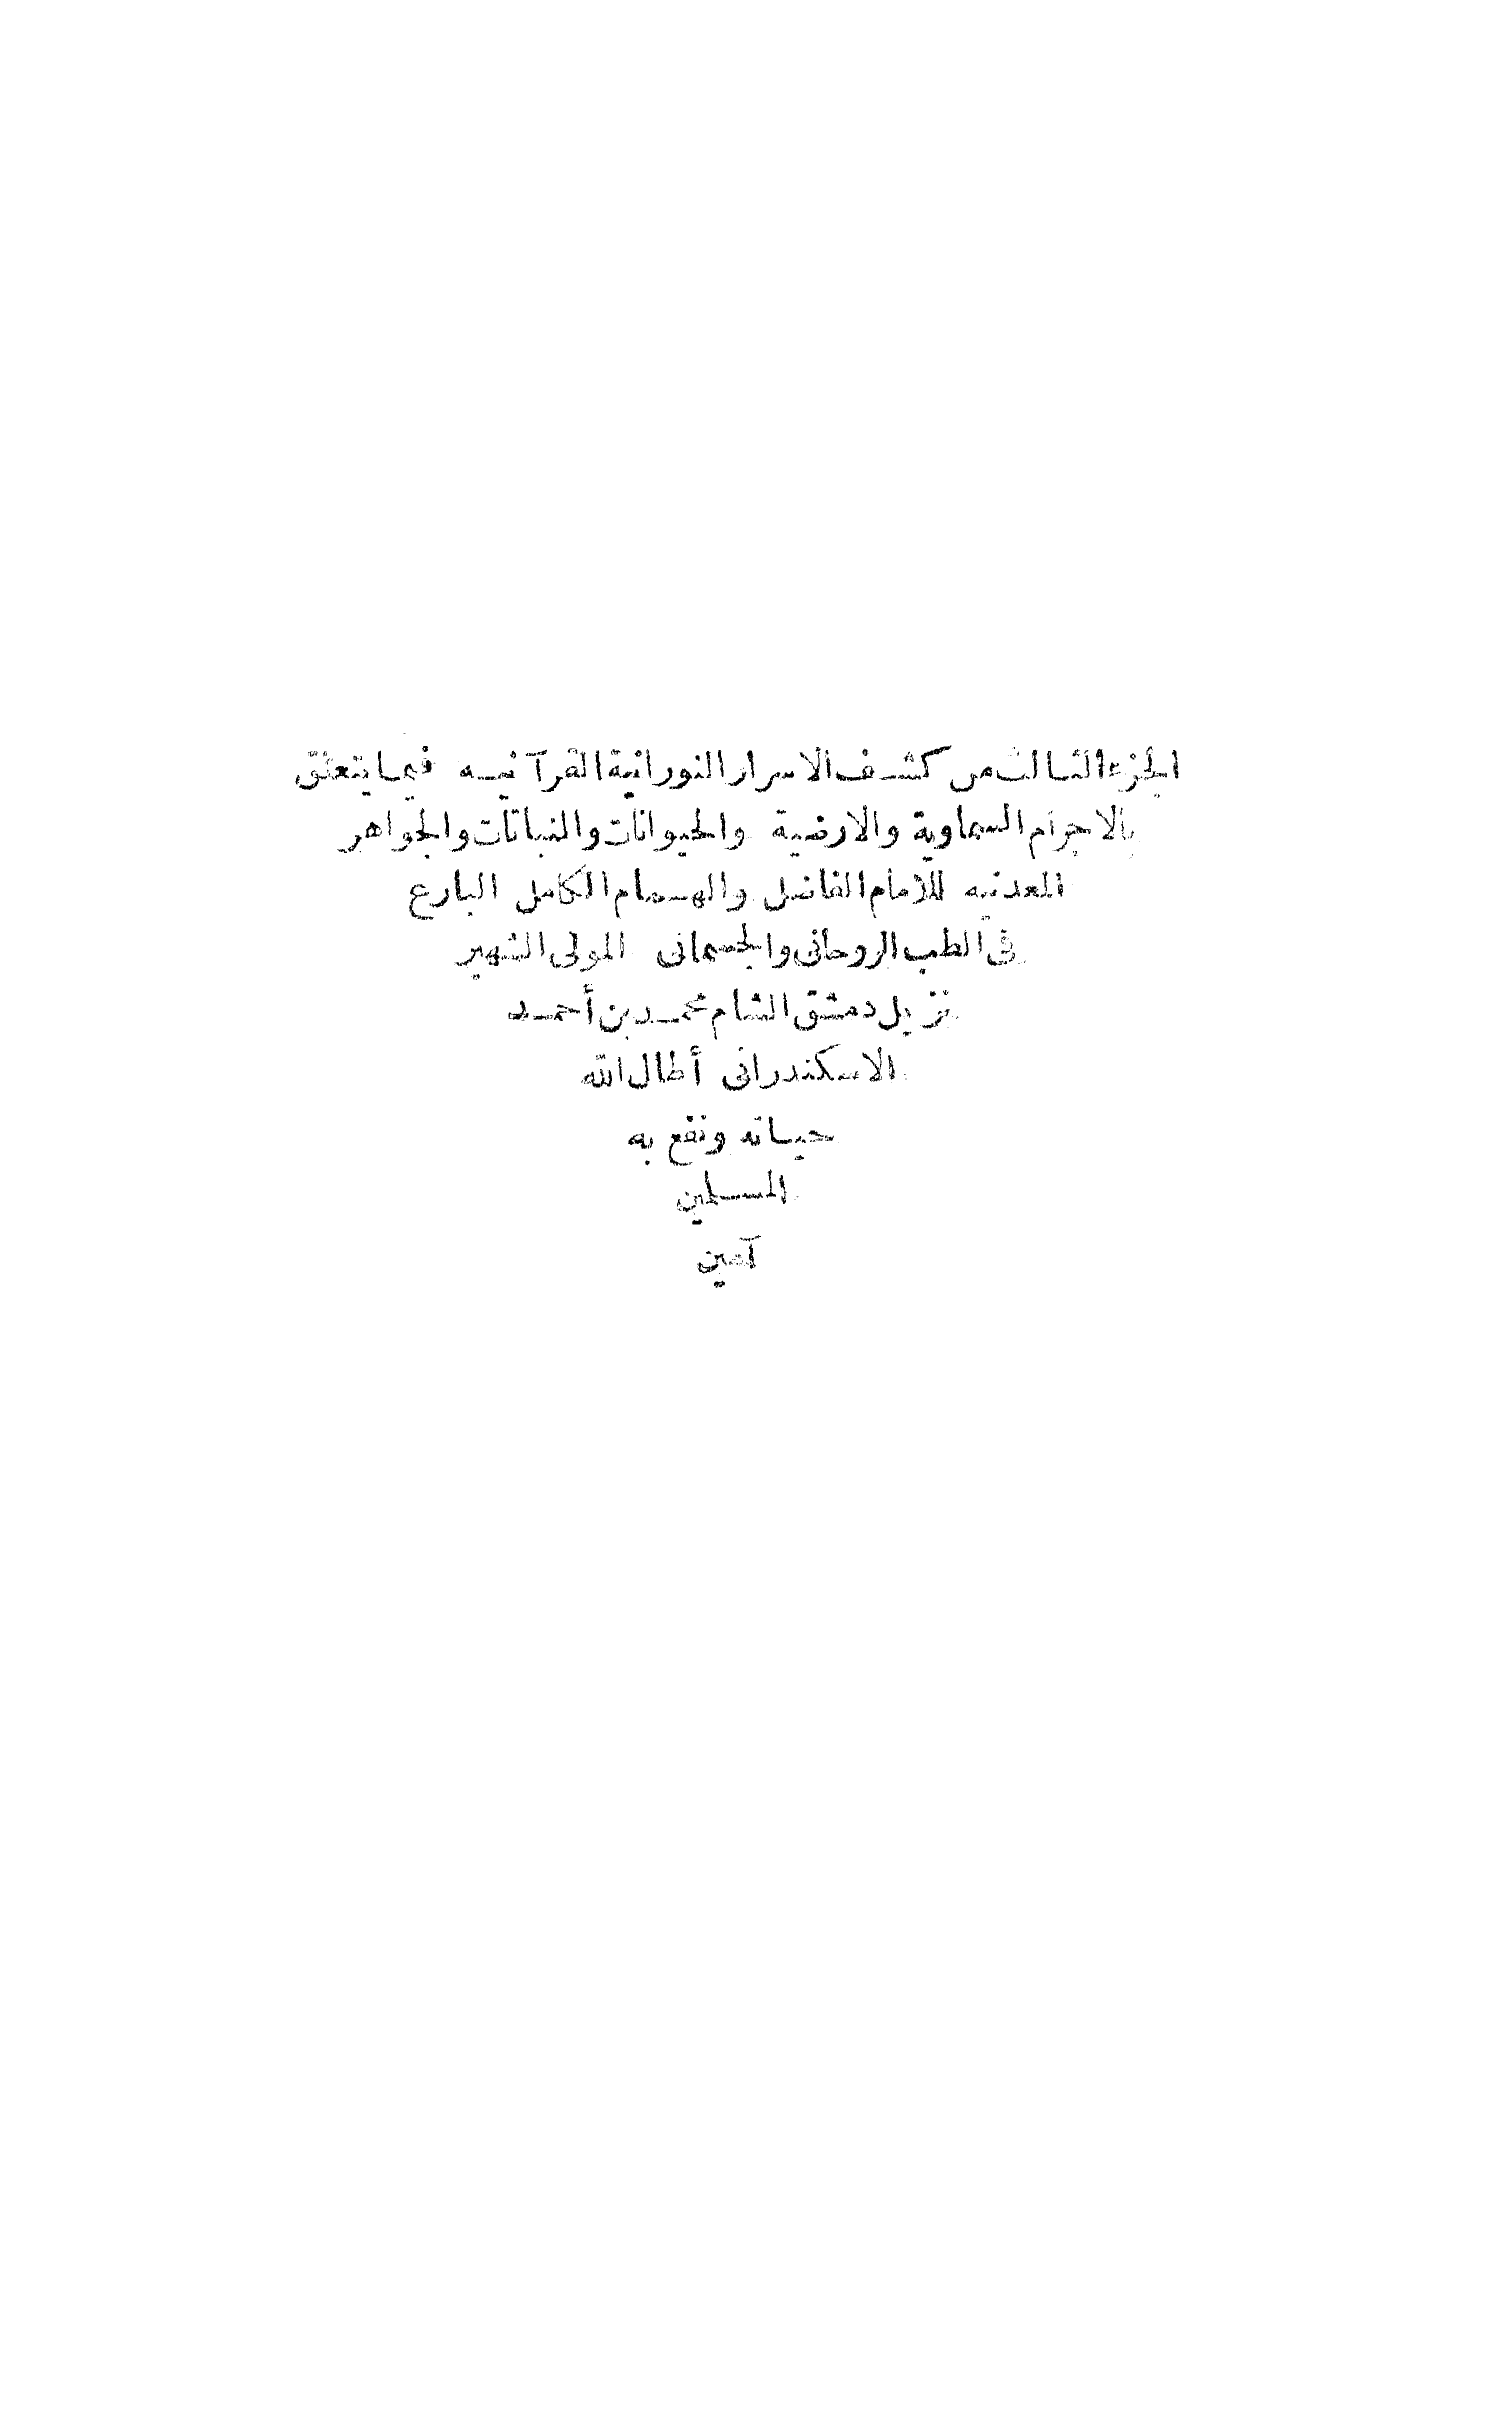 الجزء الثالث من كشف الاسرار النورانية القرآنيه فيما يتعلق
بالاجرام السماوية والارضية والحيوانات والنباتات والجواهر
المعدنيه للامام الفاضل والهمام الكامل البارع
فى الطب الروحانى والجسمانى المولى الشهير
نزيل دمشق الشام محمد بن أحمد
الاسكندرانى أطال الله
حياته ونفع به
المسلمين
آمين